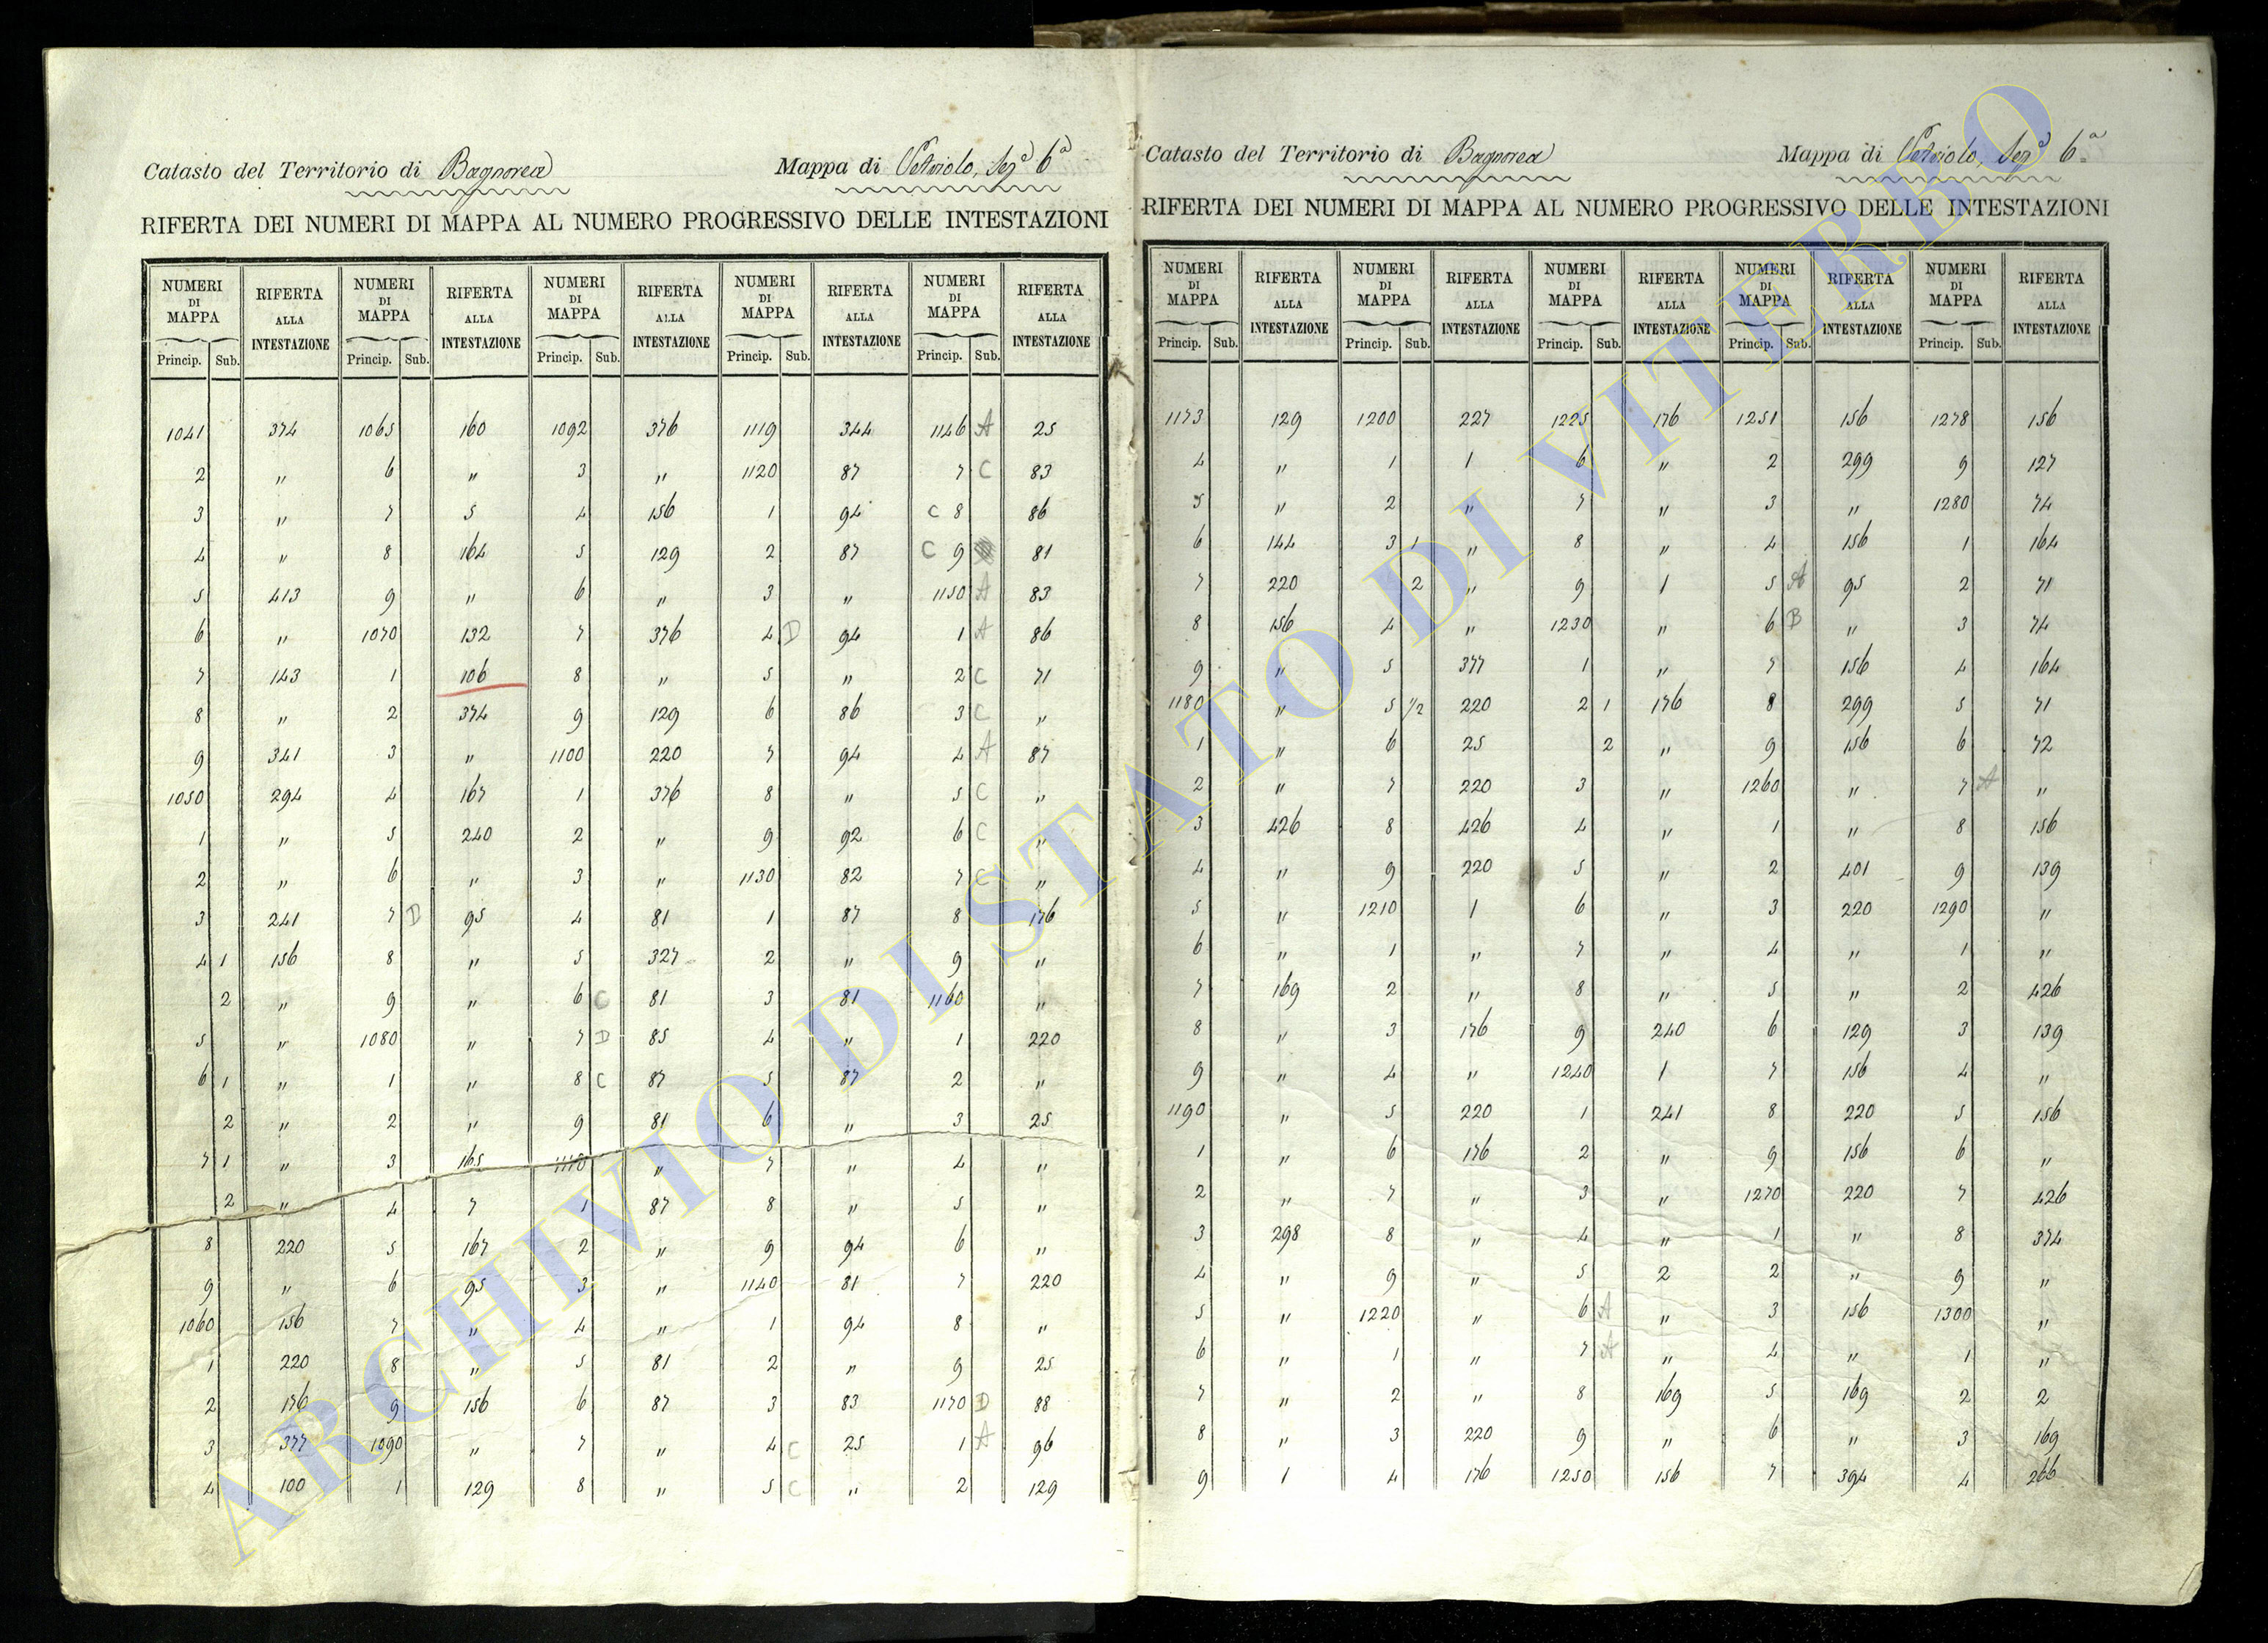 Catasto del Territorio di Bagnorea Mappa di Vetriolo, Sez.ª 6ª
RIFERTA DEI NUMERI DI MAPPA AL NUMERO PROGRESSIVO DELLE INTESTAZIONI
NUMERI DI MAPPA RIFERTA ALLA INTESTAZIONE NUMERI DI MAPPA RIFERTA ALLA INTESTAZIONE NUMERI DI MAPPA RIFERTA ALLA INTESTAZIONE NUMERI DI MAPPA RIFERTA ALLA INTESTAZIONE NUMERI DI MAPPA RIFERTA ALLA INTESTAZIONE
Princip. Sub. Princip. Sub. Princip. Sub. Princip. Sub. Princip. Sub.
1041 374 1065 160 1092 376 1119 344 1146 A 25
2 " 6 " 3 " 1120 87 7 C 83
3 " 7 5 4 156 1 94 C 8 86
4 " 8 164 5 129 2 87 C 9 81
5 413 9 " 6 " 3 " 1150 A 83
6 " 1070 132 7 376 4 D 94 1 A 86
7 143 1 106 8 " 5 " 2 C 71
8 " 2 374 9 129 6 86 3 C "
9 341 3 " 1100 220 7 94 4 A 87
1050 294 4 167 1 376 8 " 5 C "
1 " 5 240 2 " 9 92 6 C "
2 " 6 " 3 " 1130 82 7 C "
3 241 7 D 95 4 81 1 87 8 176
4 1 156 8 " 5 327 2 " 9 "
2 " 9 " 6 C 81 3 81 1160 "
5 " 1080 " 7 D 85 4 " 1 220
6 1 " 1 " 8 C 87 5 87 2 "
2 " 2 " 9 81 6 " 3 25
7 1 " 3 165 1110 " 7 " 4 "
2 " 4 7 1 87 8 " 5 "
8 220 5 167 2 " 9 94 6 "
9 " 6 95 3 " 1140 81 7 220
1060 156 7 " 4 " 1 94 8 "
1 220 8 " 5 81 2 " 9 25
2 176 9 156 6 87 3 83 1170 D 88
3 377 1090 " 7 " 4 C 25 1 A 96
4 100 1 129 8 " 5 C " 2 129
Catasto del Territorio di Bagnorea Mappa di Vetriolo, Sez.ª 6ª
RIFERTA DEI NUMERI DI MAPPA AL NUMERO PROGRESSIVO DELLE INTESTAZIONI
NUMERI DI MAPPA RIFERTA ALLA INTESTAZIONE NUMERI DI MAPPA RIFERTA ALLA INTESTAZIONE NUMERI DI MAPPA RIFERTA ALLA INTESTAZIONE NUMERI DI MAPPA RIFERTA ALLA INTESTAZIONE NUMERI DI MAPPA RIFERTA ALLA INTESTAZIONE
Princip. Sub. Princip. Sub. Princip. Sub. Princip. Sub. Princip. Sub.
1173 129 1200 227 1225 176 1251 156 1278 156
4 " 1 1 6 " 2 299 9 127
5 " 2 " 7 " 3 " 1280 74
6 144 3 1 " 8 " 4 156 1 164
7 220 2 " 9 1 5 A 95 2 71
8 156 4 " 1230 " 6 B " 3 74
9 " 5 377 1 " 7 156 4 164
1180 " 5 1/2 220 2 1 176 8 299 5 71
1 " 6 25 2 " 9 156 6 72
2 " 7 220 3 " 1260 " 7 A "
3 426 8 426 4 " 1 " 8 156
4 " 9 220 5 " 2 401 9 139
5 " 1210 1 6 " 3 220 1290 "
6 " 1 " 7 " 4 " 1 "
7 169 2 " 8 " 5 " 2 426
8 " 3 176 9 240 6 129 3 139
9 " 4 " 1240 1 7 156 4 "
1190 " 5 220 1 241 8 220 5 156
1 " 6 176 2 " 9 156 6 "
2 " 7 " 3 " 1270 220 7 426
3 298 8 " 4 " 1 " 8 374
4 " 9 " 5 2 2 " 9 "
5 " 1220 " 6 A " 3 156 1300 "
6 " 1 " 7 A " 4 " 1 "
7 " 2 " 8 169 5 169 2 2
8 " 3 220 9 " 6 " 3 169
9 1 4 176 1250 156 7 394 4 266
ARCHIVIO DI STATO DI VITERBO